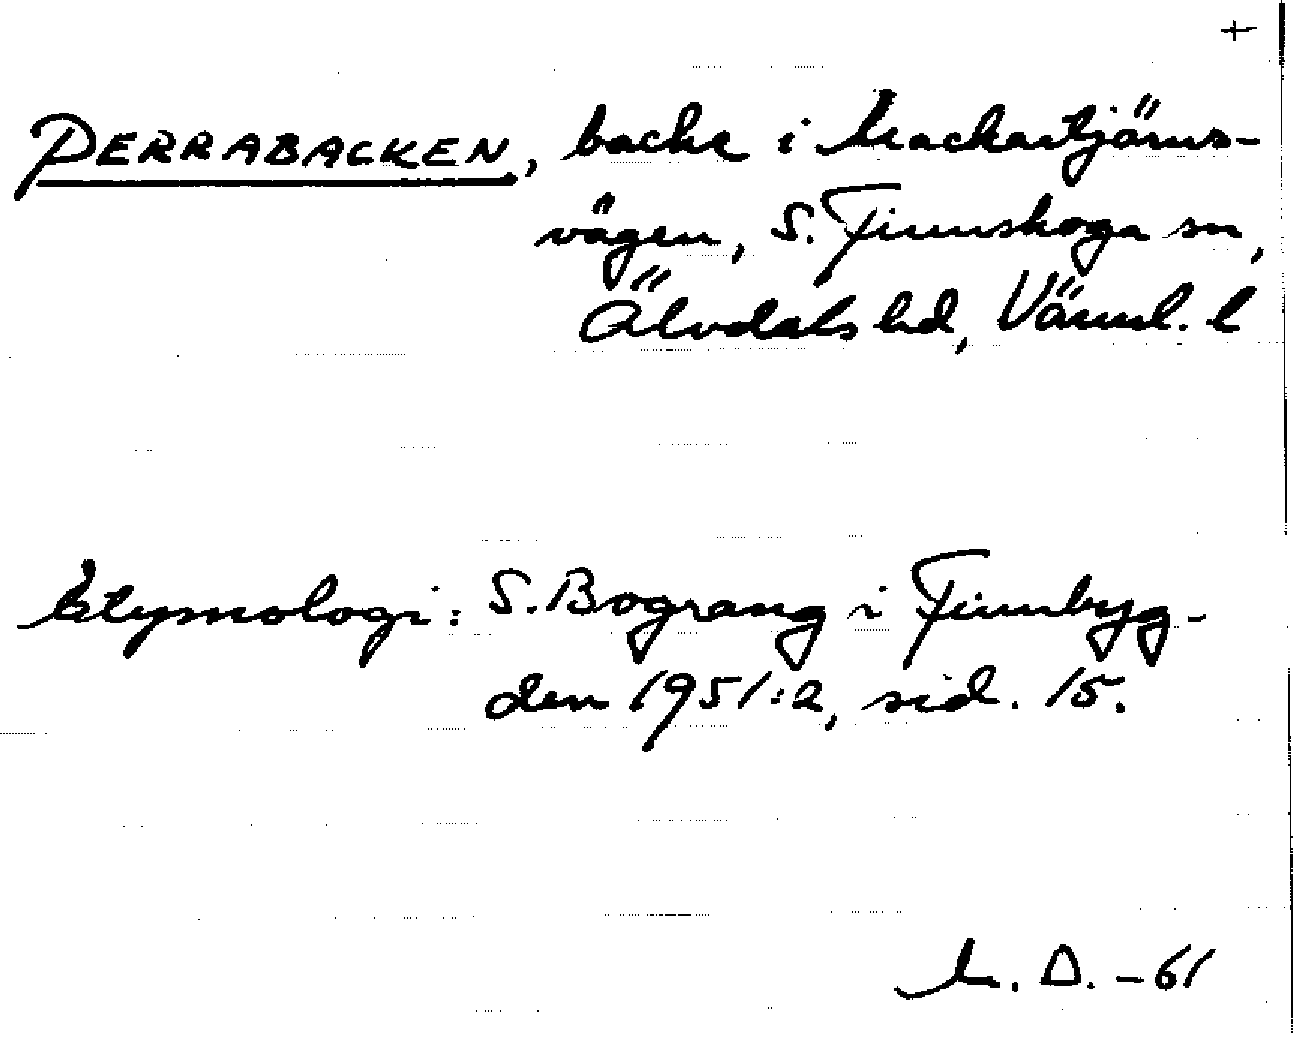 +
PERRABACKEN, backe i Mackartjärns-
vägen, S. Finnskoga sn,
Älvdals hd, Värml. l
Etymologi: S. Bograng i Finnbyg-
den 1951:2, sid. 15.
D. -61